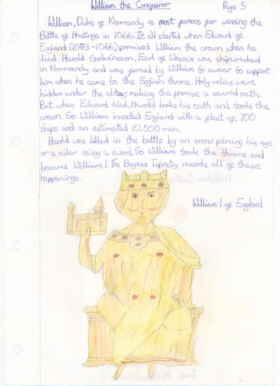 William the Conqueror
Page 5
William, Duke of Normandy is most famous for winning the
Battle of Hastings in 1066. It all started when Edward of
England (1043-1066) promised William the crown when he
died. Harold Godwinson, Earl of Wessex was shipwrecked
in Normandy and was forced by William to swear to support
him when he came to the English throne. Holy relics were
hidden under the altar, making the promise a sacred oath.
But when Edward died, Harold broke his oath and took the
crown. So William invaded England with a fleet of 700
ships and an estimated 10,500 men.
Harold was killed in the battle by an arrow piercing his eye
or a rider using a sword, so William took the throne and
became William I. The Bayeux Tapestry records all of these
happenings.
William I of England